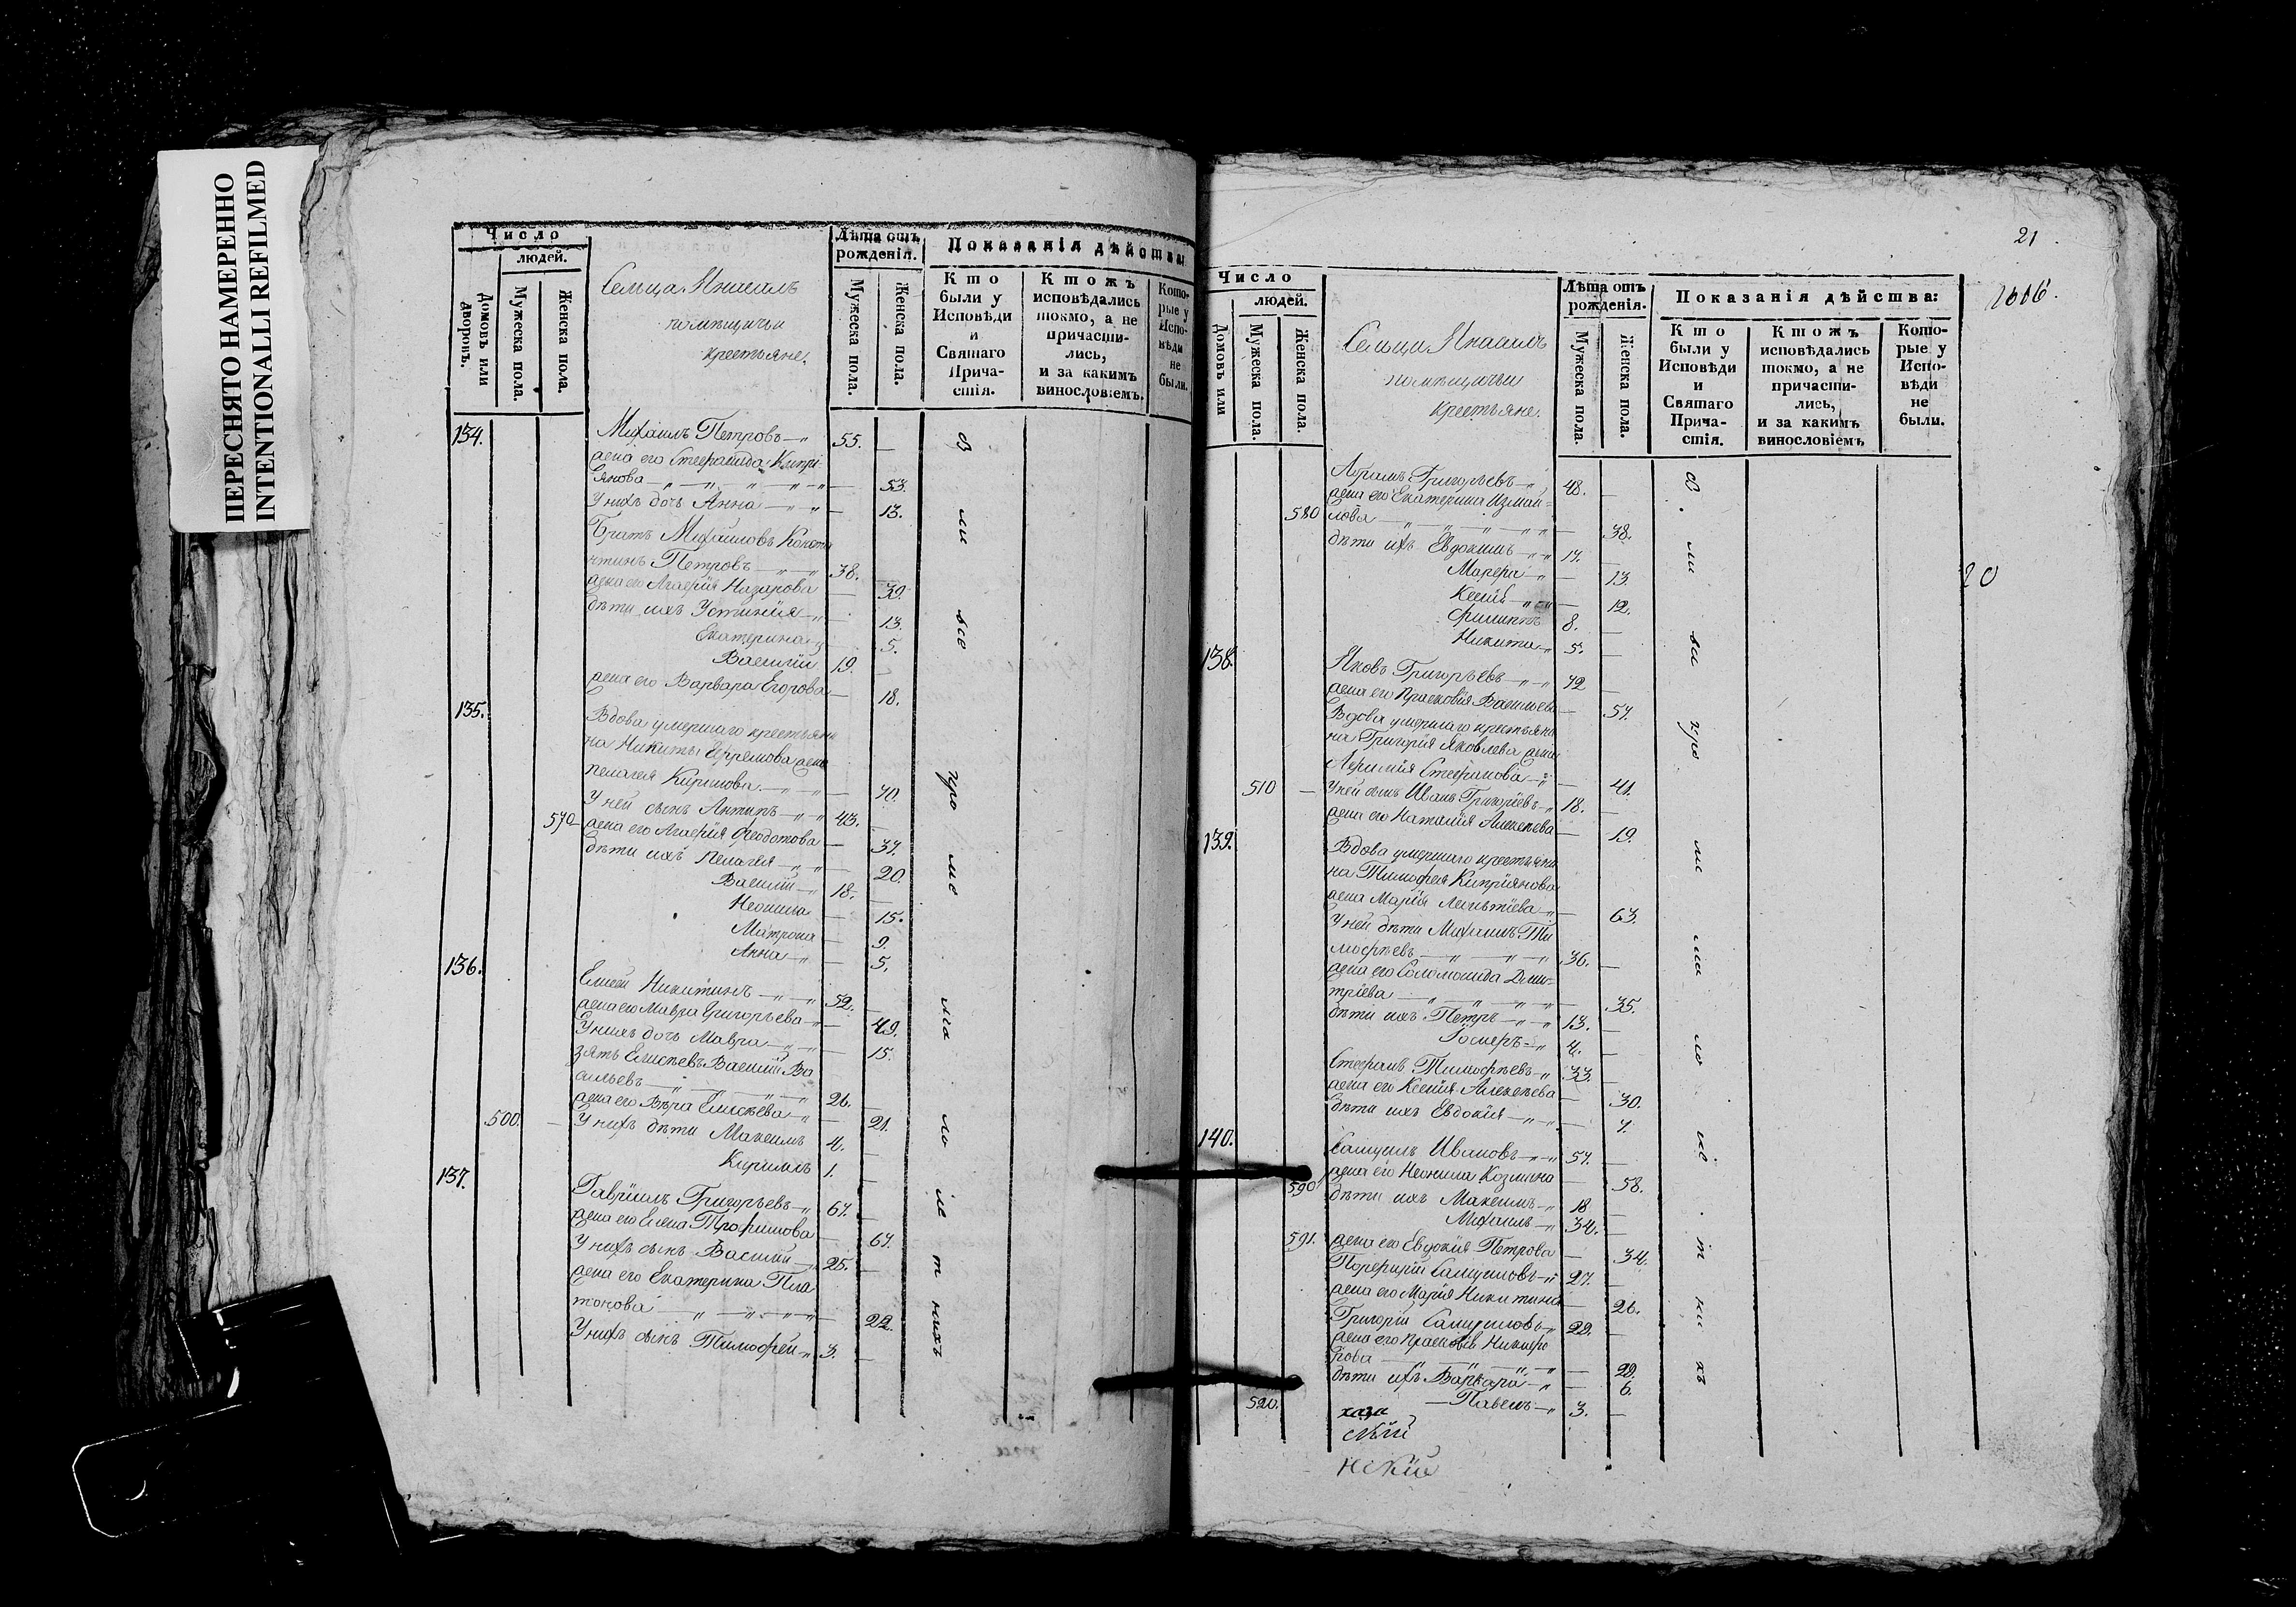 ПЕРЕСНЯТО НАМЕРЕННО
INTENTIONALLI REFILMED
Число
людей.
Домовъ или дворовъ.
Мужеска пола.
Женска пола.
Сельца
помѣщичьи
крестьяне.
Лѣта отъ рожденія.
Мужеска пола.
Женска пола.
Показанія дѣйства:
Кто были у Исповѣди и Святаго Причастія.
Ктожъ исповѣдались токмо, а не причастились, и за какимъ винословіемъ.
Которые у Исповѣди не были.
134. Михаилъ Петровъ 55.
жена его Стефанида Кипрі-
янова 53.
У нихъ дочь Анна 13.
Братъ Михаиловъ Конста
нтинъ Петровъ 38.
жена его Агафія Назарова 39.
дѣти ихъ Устинія 13.
Екатерина 5.
Василій 19.
жена его Варвара Егорова 18.
135. Вдова умершаго крестьяни
на Никиты Ефремова жена
Пелагея Кирилова 70.
У ней сынъ Антипъ 43.
570 жена его Агафія Феодотова 37.
дѣти ихъ Пелагея 20.
Василій 18.
Неонила 15.
Матрона 9.
Анна 5.
136. Елисей Никитинъ 52.
жена его Мавра Григорьева 49.
У нихъ дочь Мавра 15.
зять Елисѣевъ Василій Ва
сильевъ 26.
жена его Вѣра Елисѣева 21.
500. У нихъ дѣти Максимъ 4.
Кирилъ 1.
137. Гавріилъ Григорьевъ 67.
жена его Елена Трофимова 67.
У нихъ сынъ Василій 25.
жена его Екатерина Пла
тонова 22.
У нихъ сынъ Тимофей 3.
21
Число
людей.
Домовъ или
Мужеска пола.
Женска пола.
Сельца
помѣщичьи
крестьяне.
Лѣта отъ рожденія.
Мужеска пола.
Женска пола.
Показанія дѣйства:
Кто были у Исповѣди и Святаго Причастія.
Ктожъ исповѣдались токмо, а не причастились, и за какимъ винословіемъ
Которые у Исповѣди не были.
Григорьевъ 48.
жена его Екатерина Измаи-
580 лова 38.
дѣти ихъ Евдокимъ 17.
Марфа 13.
Ксенія 12.
Филиппъ 8.
Никита 5.
20
138. Яковъ Григорьевъ 72
жена его Прасковія Васильева 57.
Вдова умершаго крестьяни
на Григорія Яковлева жена
Стефанова 41.
510 У ней сынъ Иванъ Григоріевъ 18.
жена его Наталія Алексѣева 19.
139. Вдова умершаго крестьяни
на Тимофея Кипріянова
жена Марія 63.
У ней дѣти Михаилъ Ти
мофѣевъ 36.
жена его Соломонида Дми-
тріева 35.
дѣти ихъ Петръ 13.
4.
Стефанъ Тимофѣевъ 33.
жена его Ксенія Алексѣева 30.
дѣти ихъ Евдокія 7.
140. Самуилъ Ивановъ 57.
жена его Неонила Козмина 58.
590 дѣти ихъ Максимъ 18
Михаилъ 34.
591. жена его Евдокія Петрова 34.
Порфирій Самуиловъ 27.
жена его Марія Никитина 26.
Григорій Самуиловъ 22.
жена его Прасковія Никифо
рова 22.
дѣти ихъ Варвара 6.
520. Павелъ 3.